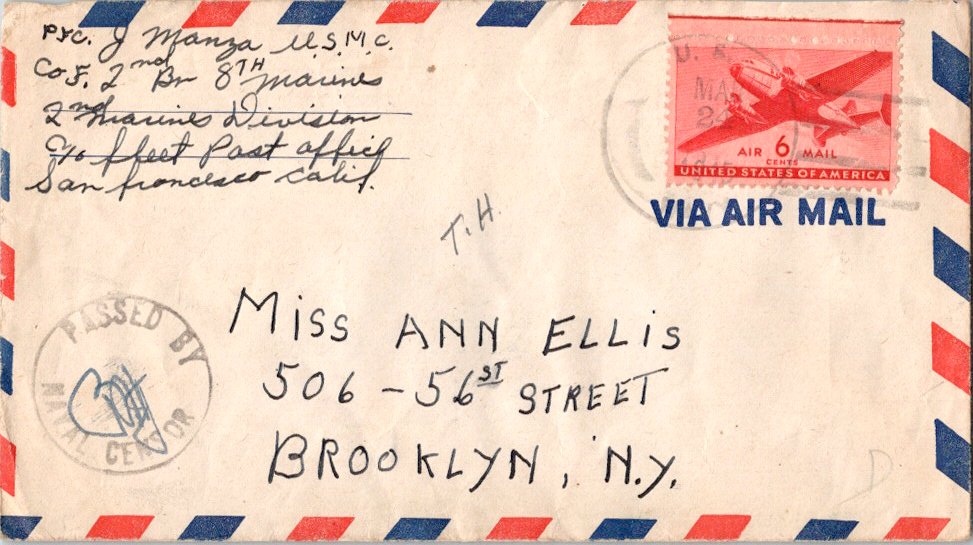 Pvc. J Manza U.S.M.C.
Co F. 2nd Bn 8TH Marines
2nd Marines Division
C/o fleet Post office
San francesco Calif.
U. S.
MA
24
AIR 6 MAIL
CENTS
UNITED STATES OF AMERICA
VIA AIR MAIL
T.H.
PASSED BY
NAVAL CENSOR
MISS ANN ELLIS
506 - 56ST STREET
BROOKLYN, N.Y.
D